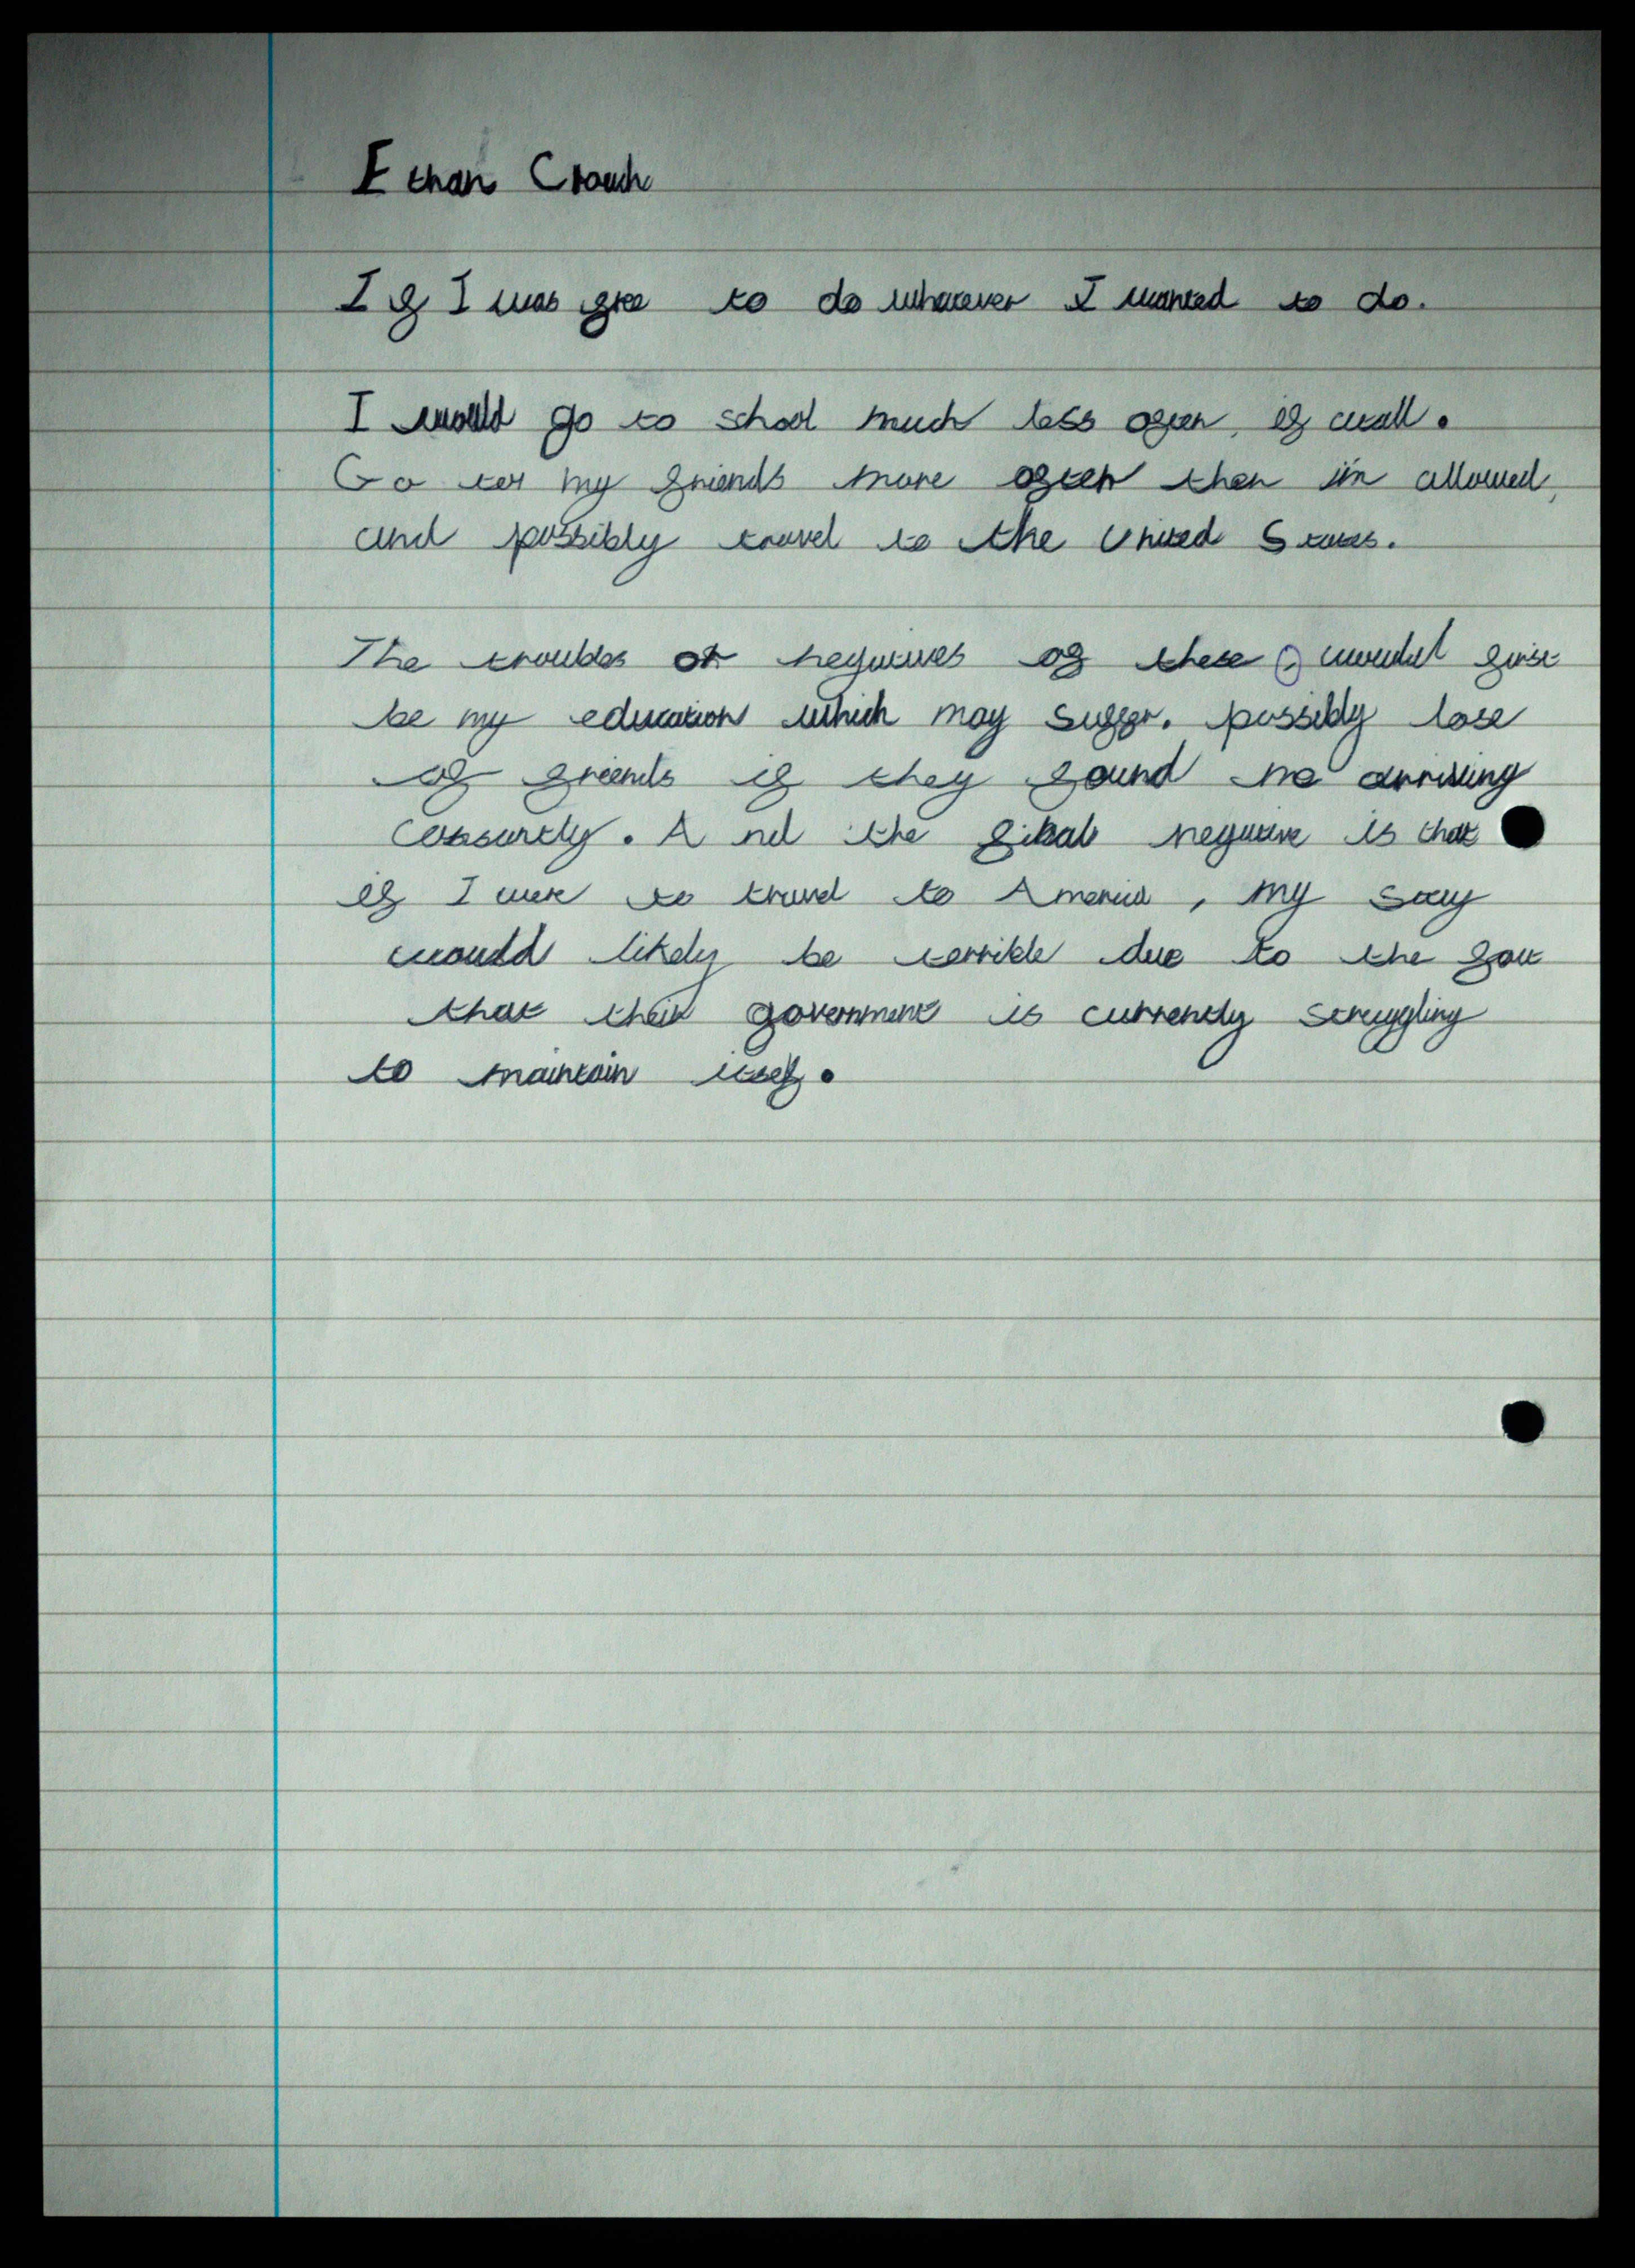 Ethan Crouch
If I was free to do whatever I wanted to do.
I would go to school much less often, if atall.
Go to my friends more often then im allowed,
and possibly travel to the United States.
The troubles or negatives of these, would first
be my education which may suffer. possibly lose
of friends if they found me arriving
constantly. And the final negative is that
if I were to travel to America, my stay
would likely be terrible due to the fact
that their government is currently struggling
to maintain itself.